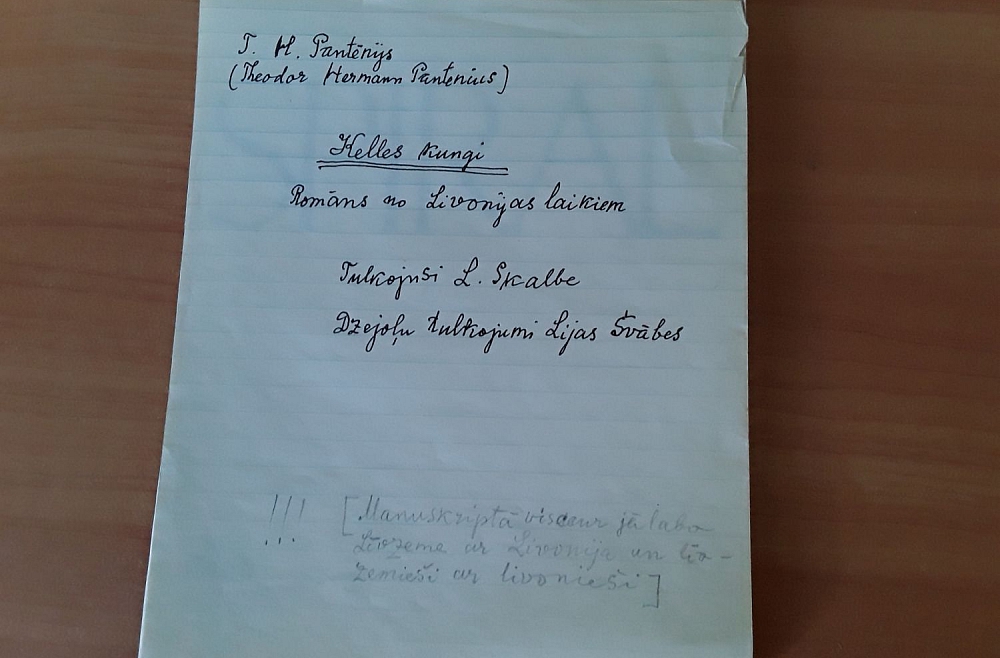 T. H. Pantēnijs
(Theodor Hermann Pantenius)
Kelles kungi
Romāns no Livonijas laikiem
Tulkojusi L. Skalbe
Dzejoļu tulkojumi Lijas Švābes
!!! [Manuskriptā viscaur jālabo
Līvzeme ar Livonija un līv-
zemieši ar livonieši]